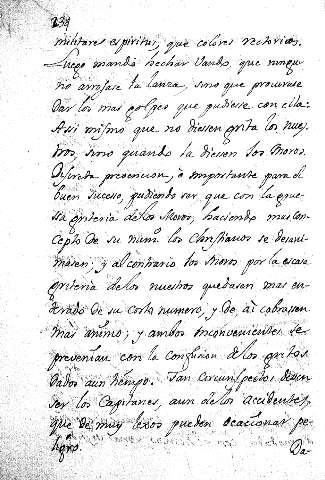 234
militares espiritus, que colores rectoricos.
Luego mandò hechar Vando, que ningu-
no arrojase la lanza, sino que procurase
dar los mas golpes que pudiese con ella:
Assi mismo que no diesen grita los nues-
tros, sino quando la diesen los Moros.
prevencion, è importante para el
buen suceso, pudiendo ser que con la grue-
sa griteria de los Moros, haciendo mas con-
cepto de su num.º los Christianos se desani-
masen; y al contrario los Moros por la escasa
griteria de los nuestros quedasen mas en-
de su corto numero, y de ài cobrassen
mas animo; y ambos inconvenientes se
prevenian con la confusion de los gritos
dados à un tiempo. Tan circunspectos deven
ser los Capitanes, aun de los accidentes,
que de muy lexos pueden ocacionar pe-
ligro.
Da-